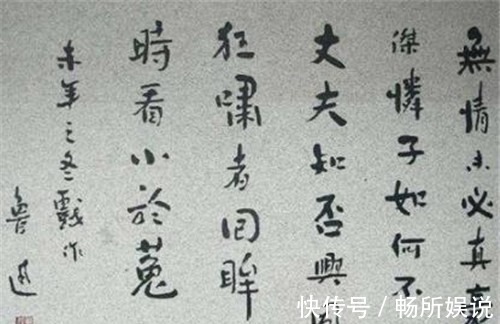 無情未必真
傑憐子如何不
丈夫知否興
狂嘯者回眸
時看小於菟
未年之冬戲作
魯迅
快传号 / 畅所娱说